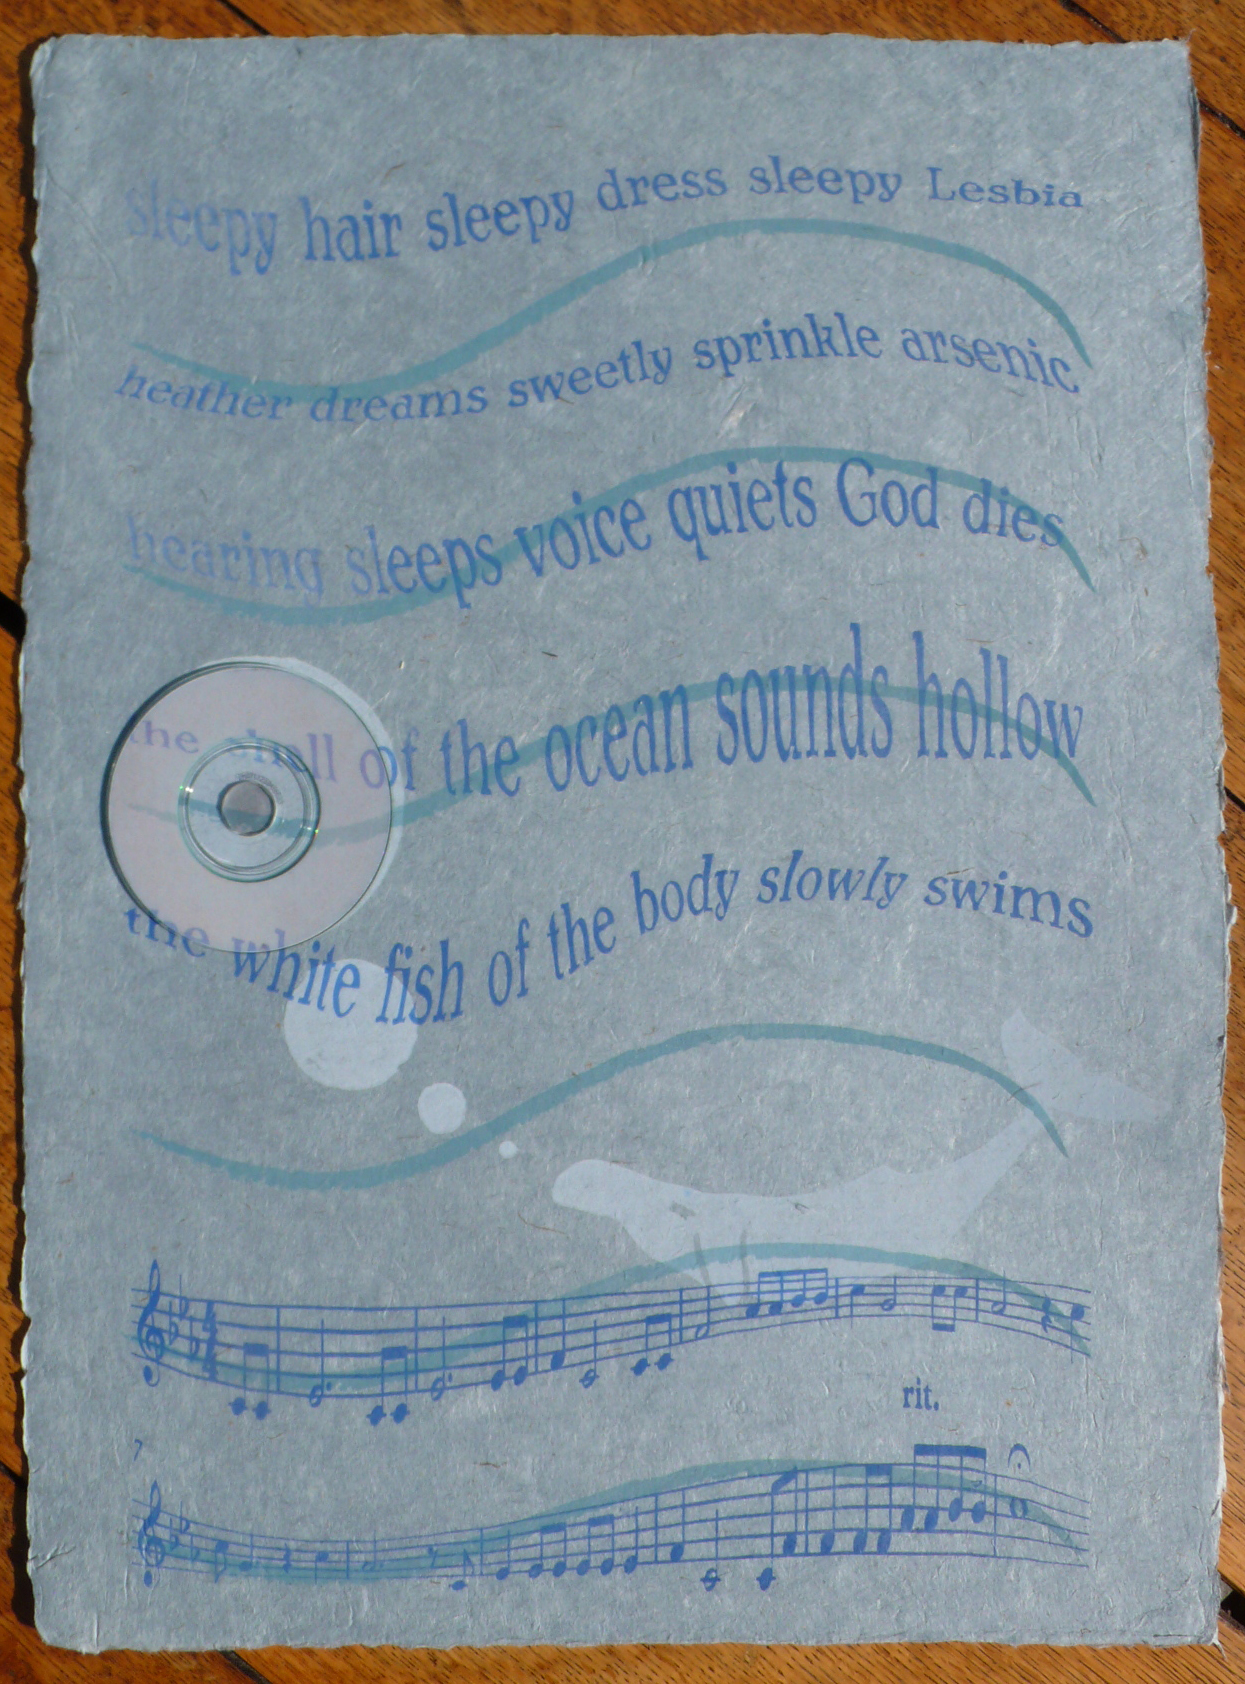 sleepy hair sleepy dress sleepy Lesbia
heather dreams sweetly sprinkle arsenic
hearing sleeps voice quiets God dies
the shell of the ocean sounds hollow
the white fish of the body slowly swims
rit.
7